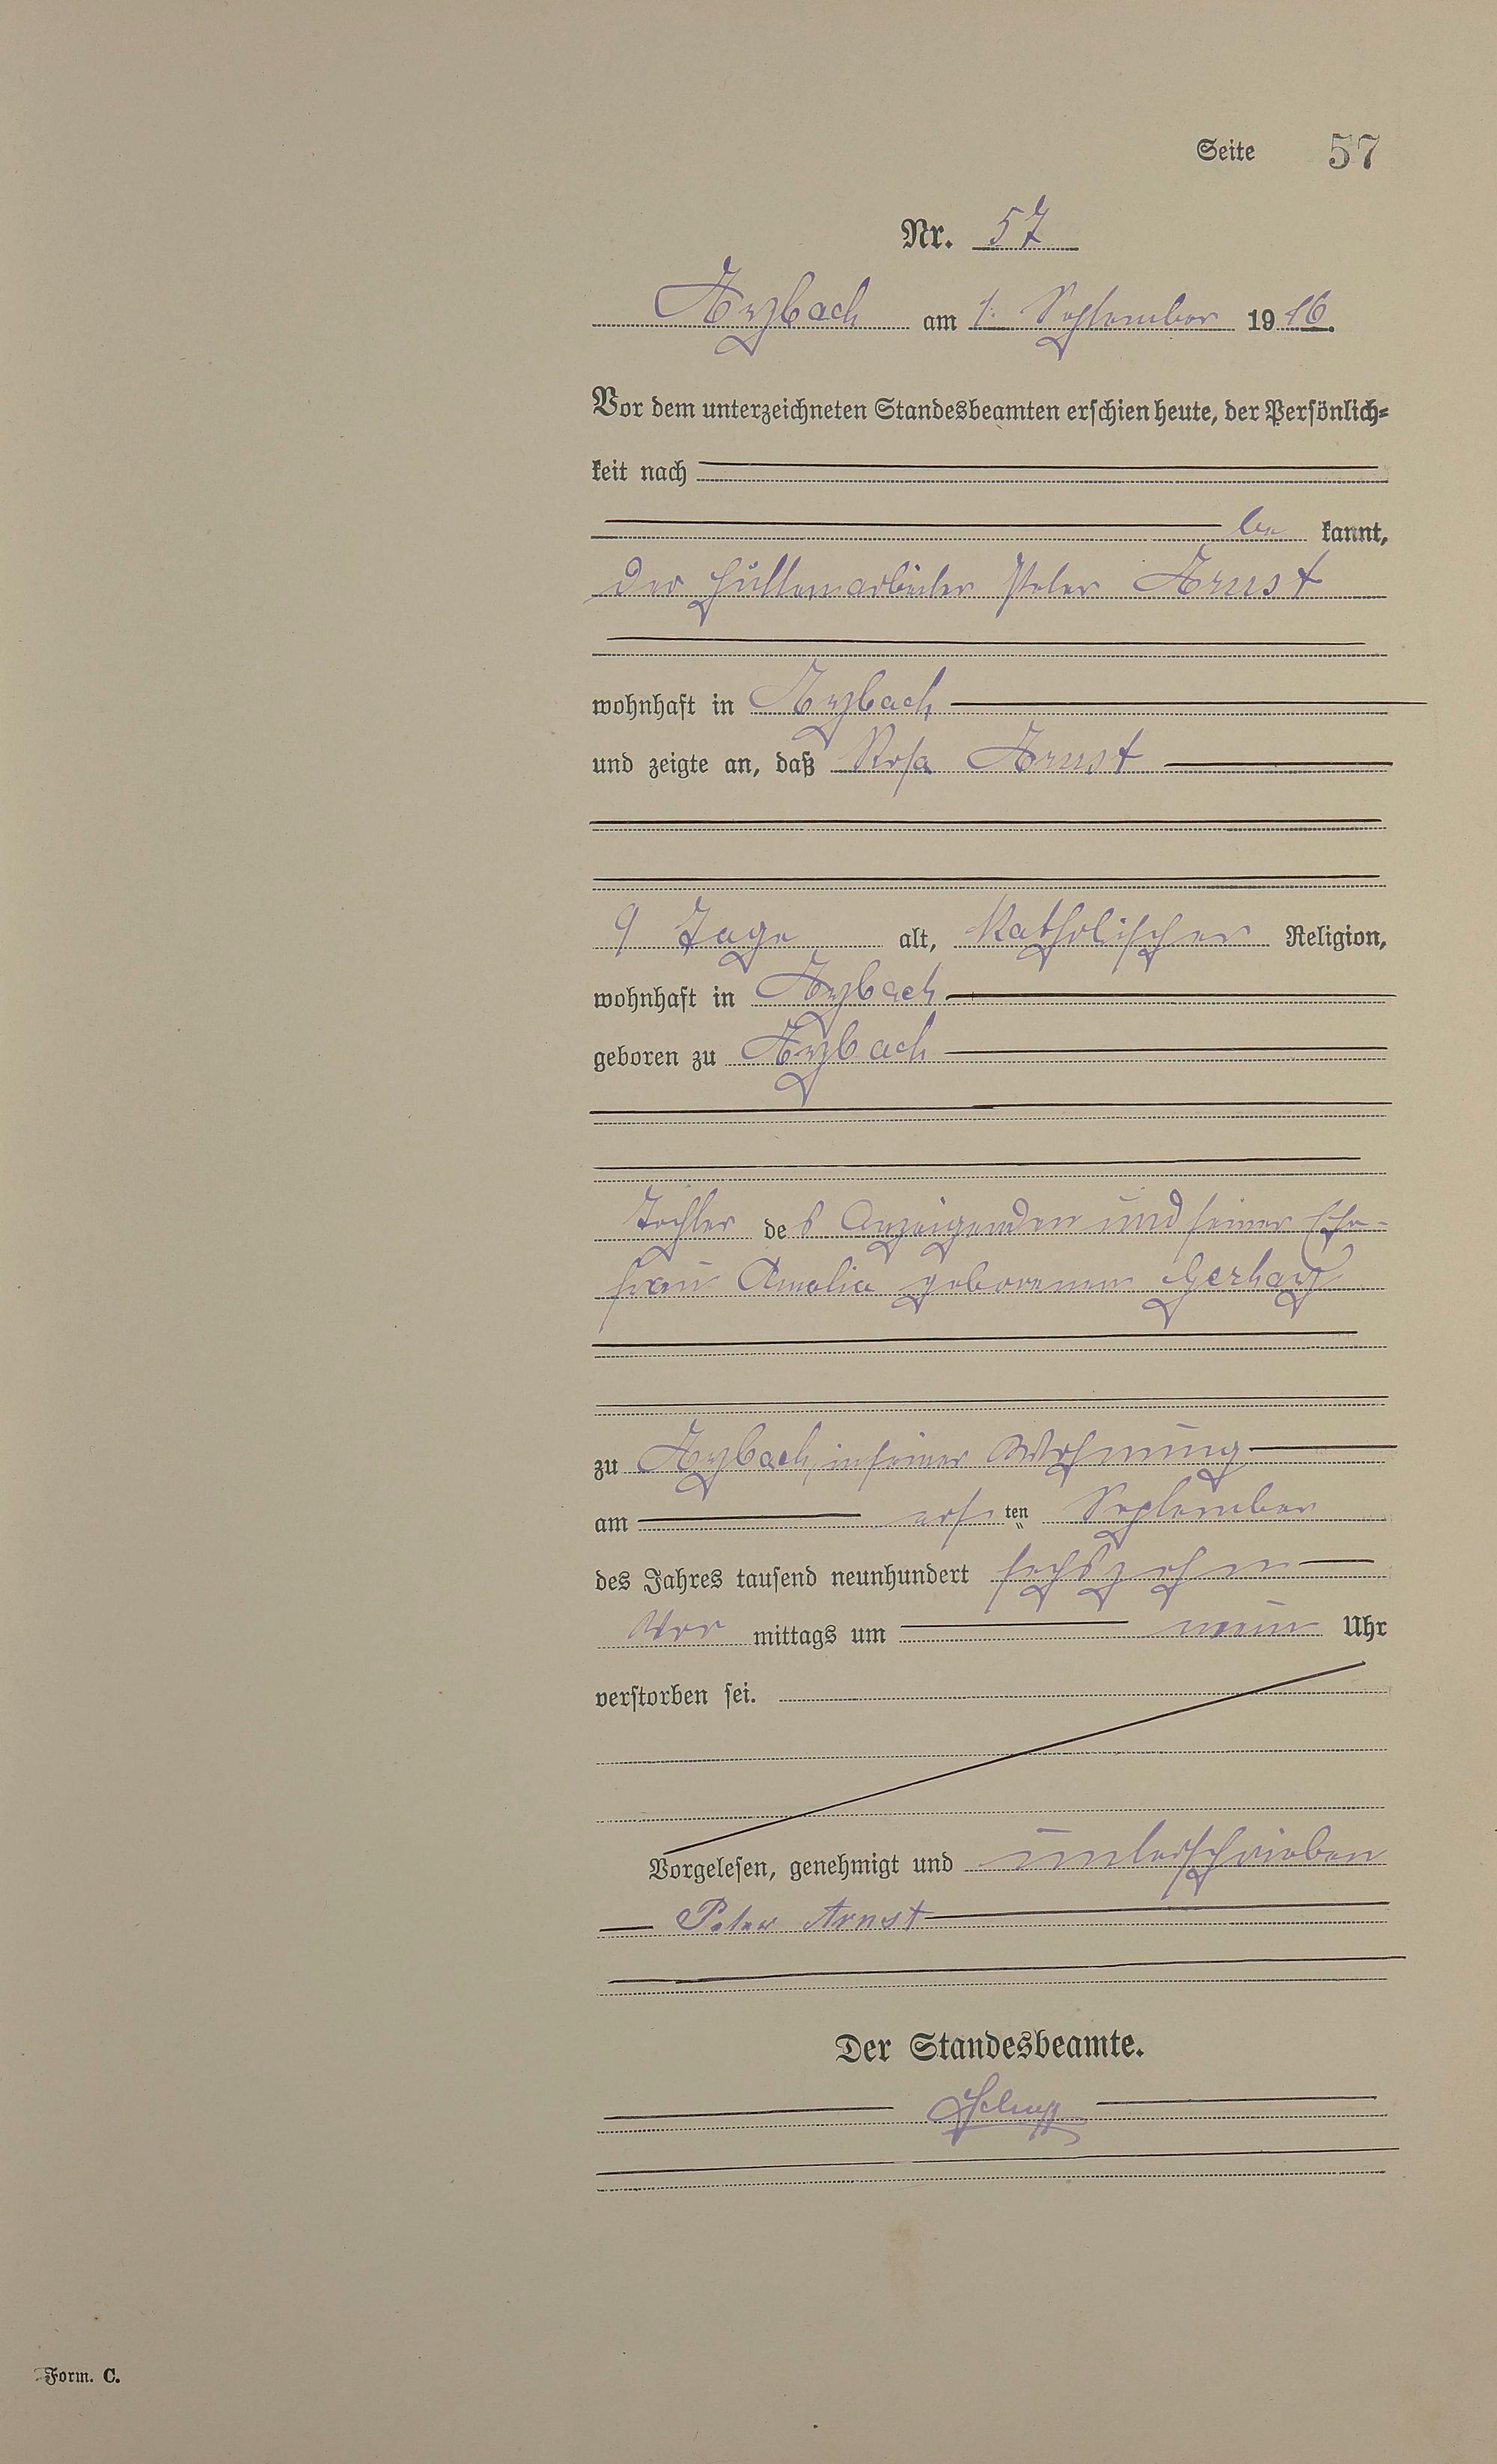 Seite 57
Nr. 57
Arzbach am 1. September 1916.
Vor dem unterzeichneten Standesbeamten erschien heute, der Persönlich=
keit nach
be kannt,
der Hüttenarbeiter Peter Arnst
wohnhaft in Arzbach
und zeigte an, daß Rosa Arnst
9 Tage alt, katholischer Religion,
wohnhaft in Arzbach
geboren zu Arzbach
Tochter des Anzeigenden und seiner Ehe-
frau Amalia geborenen Gerharz
zu Arzbach, in seiner Wohnung
am ersten September
des Jahres tausend neunhundert sechszehn
Vor mittags um neun Uhr
verstorben sei.
Vorgelesen, genehmigt und unterschrieben
Peter Arnst
Der Standesbeamte.
Form. C.